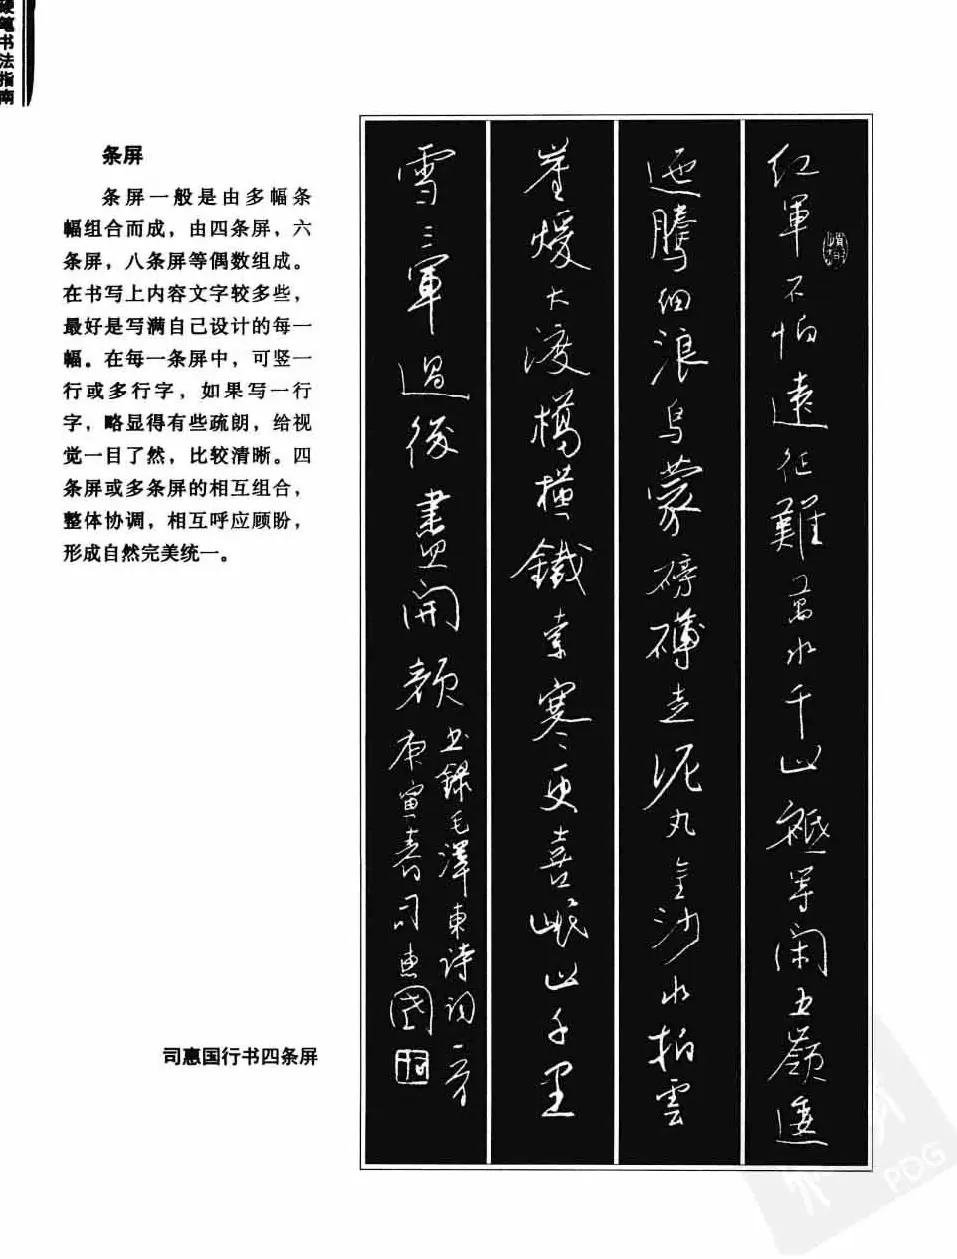 硬笔书法指南
条屏
条屏一般是由多幅条
幅组合而成，由四条屏，六
条屏，八条屏等偶数组成。
在书写上内容文字较多些，
最好是写满自己设计的每一
幅。在每一条屏中，可竖一
行或多行字，如果写一行
字，略显得有些疏朗，给视
觉一目了然，比较清晰。四
条屏或多条屏的相互组合，
整体协调，相互呼应顾盼，
形成自然完美统一。
红軍不怕遠征難萬水千山衹等闲五嶺逶
迤腾细浪乌蒙磅礴走泥丸金沙水拍雲
崖煖大渡橋横鐵索寒更喜岷山千里
雪三軍過後盡開颜
书録毛澤東诗词一首
庚寅春司惠國
司惠国行书四条屏
PDG